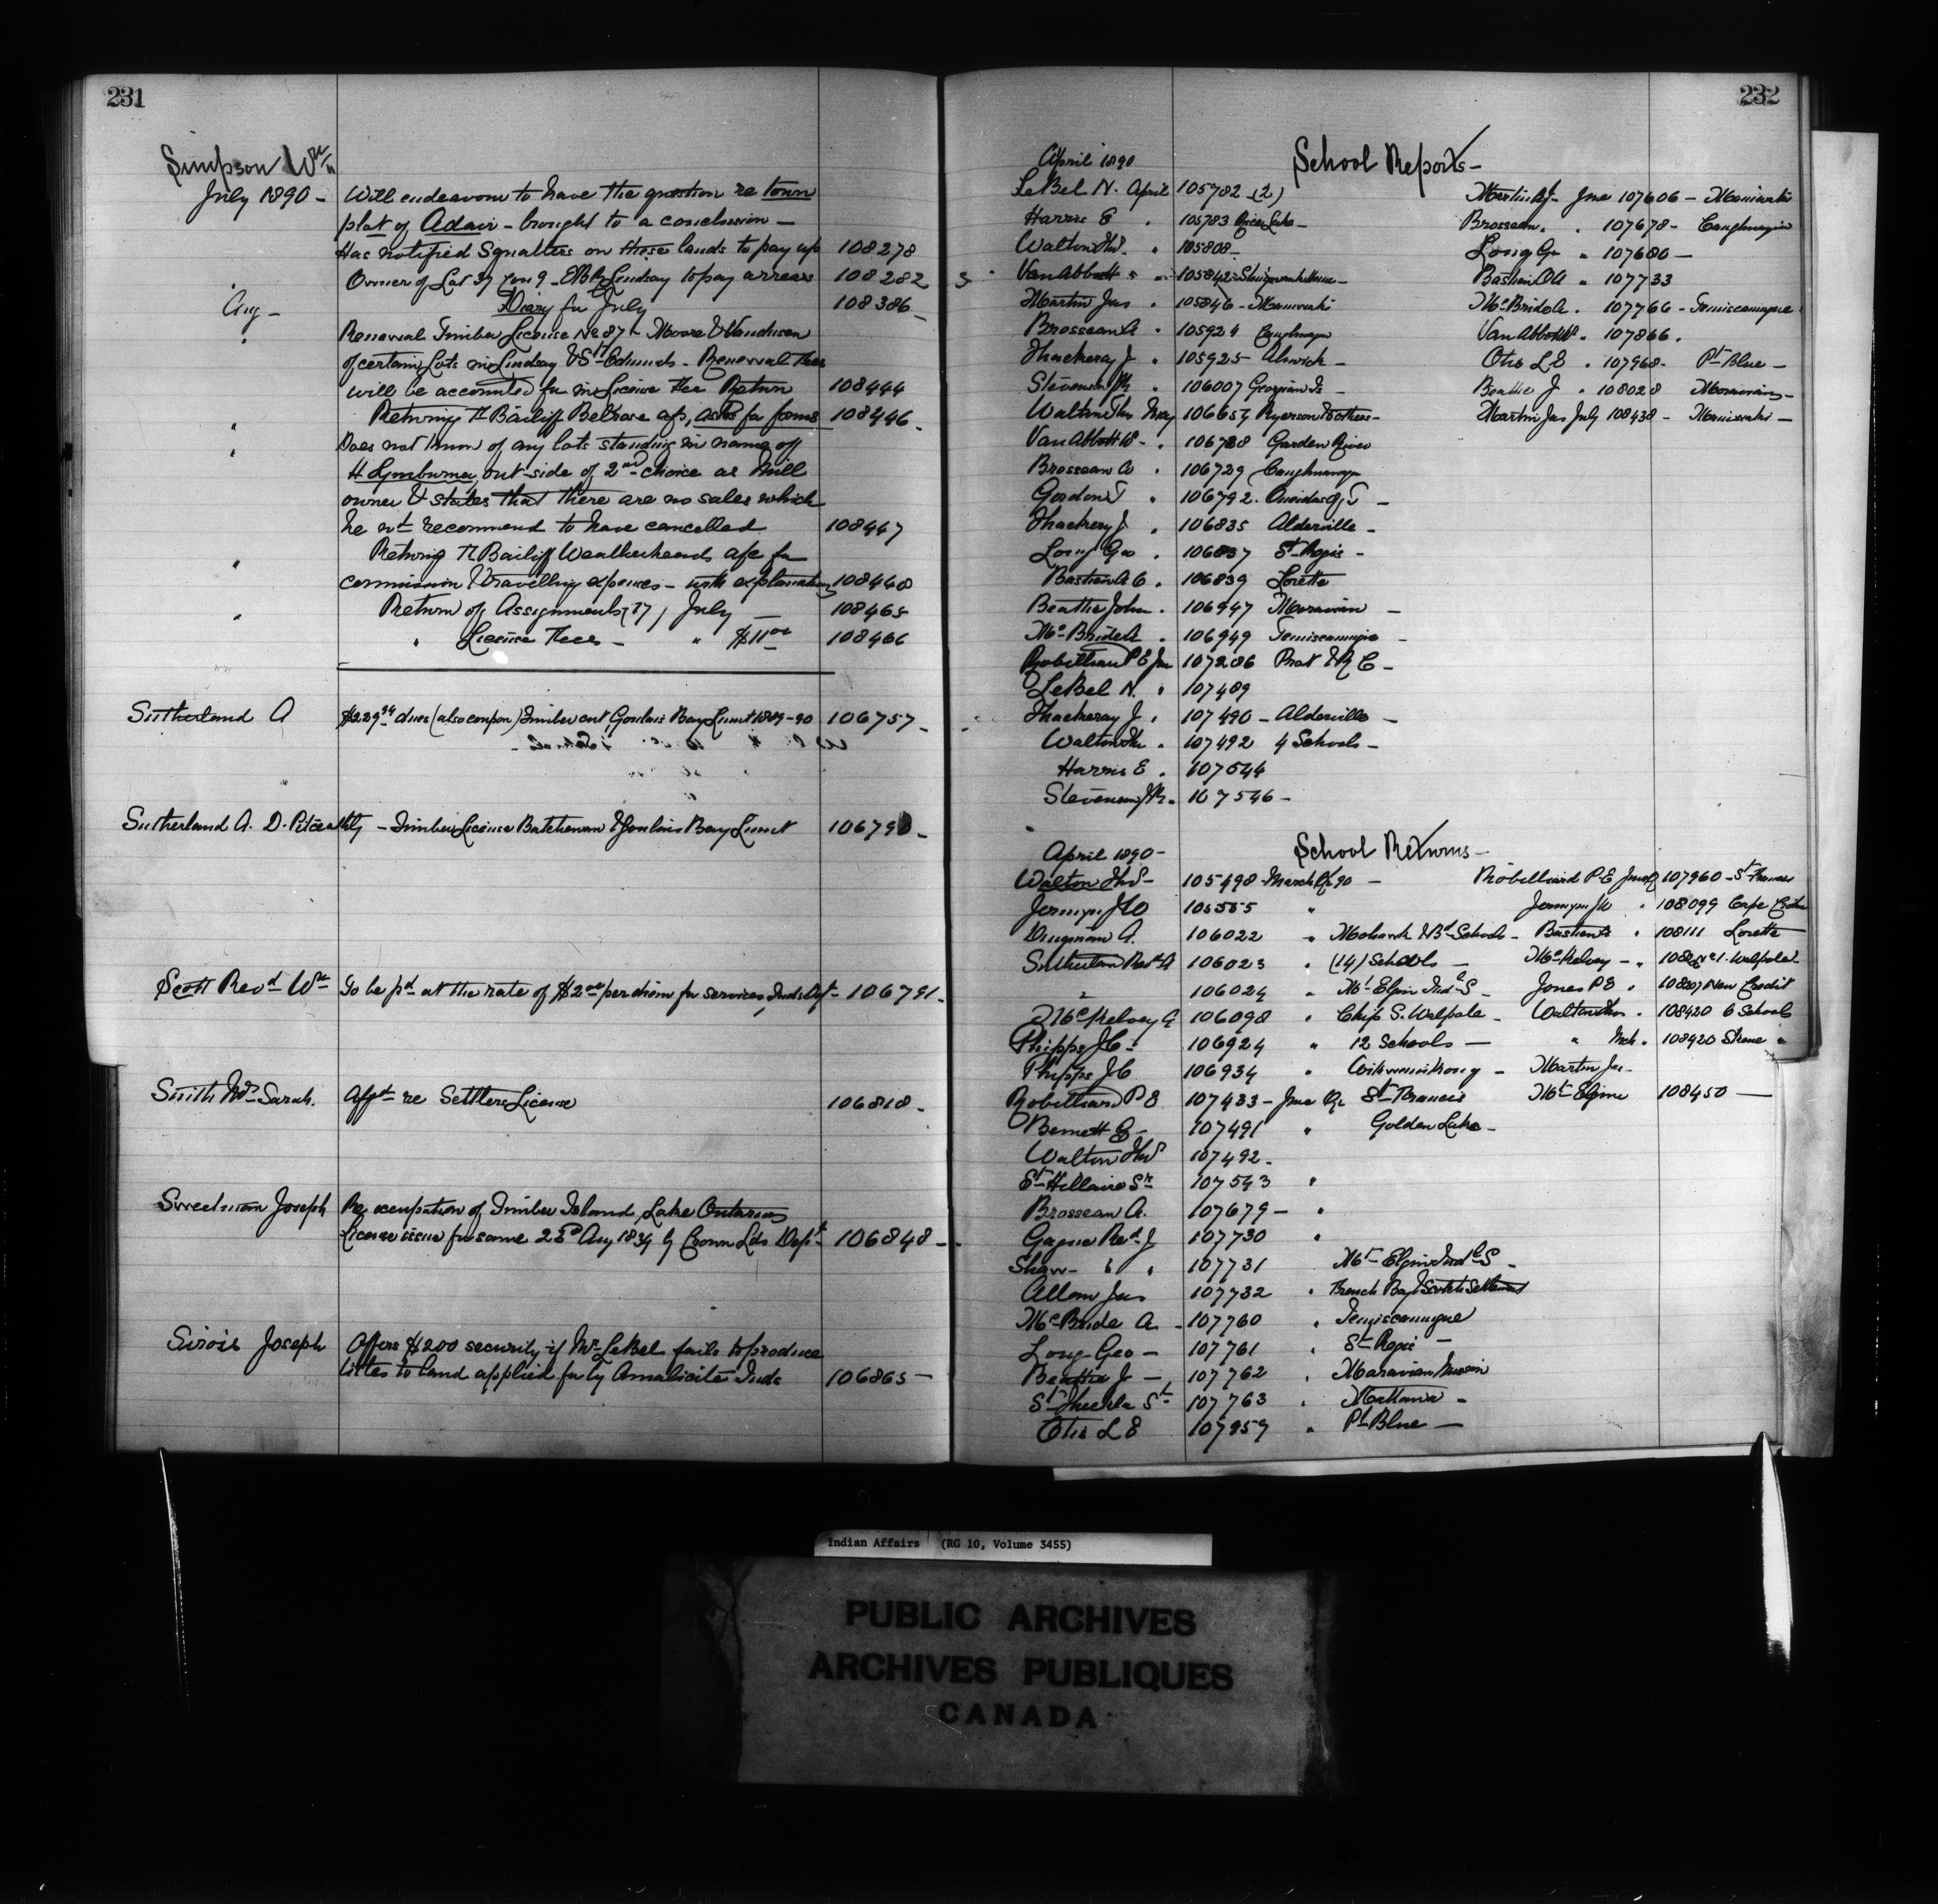 231
Simpson Wm
July 1890 - Will endeavour to have the question re town
plat of Adair - brought to a conclusion -
Has notified Squatters on these lands to pay up 108278
Owner of Lot 37 Con 9 - EBR Lindsay to pay arrears 108282
Aug - Diary for July 108386 -
" Renewal Timber License No 87 - Moore & Vandusen
of certain Lots in Lindsay & St Edmunds - Renewal Fees
will be accounted for in License Fee Return 108444
" Returning Bailiff Belrose a/c, asks for forms 108446 -
" Does not know of any lots standing in name of
H Lymburner, out-side of 2nd choice as Mill
owner & states that there are no sales which
he wd recommend to have cancelled 108447
" Returng Bailiff Weatherheads a/c for
commission & travelling expenses - with explanations 108460
" Return of Assignments (7), July - 108465
" License Fees - " $11 00 108466
Sutherland A $229 dues (also coupon) Timber cut Goulais Bay Limit 1889-90 106757 -
Sutherland A. D. Pitceathly - Timber License Batchewan & Goulais Bay Limit 106790 -
Scott Revd Wm To be pd at the rate of $2 00 per diem for services, Inds Dept - 106791 -
Smith Mrs Sarah. Affdt re Settlers License 106818 -
Sweetman Joseph Re occupation of Timber Island, Lake Ontario
License issue for same 23d Aug 1834 by Crown Lds Dept 106848 -
Sirois Joseph Offers $200 security if Mr LeBel fails to produce
titles to land applied for by Amalicite Inds 106865 -
232
April 1890 School Reports -
LeBel N. April 105782 (2)
Harris E " 105783 Rice Lake -
Walton Thos " 105808 -
Van Abbott " 105842
Martin Jas " 105846 - Maniwaki
Brosseau A " 105924 Caughnawaga
Thackeray J " 105925 Alnwick -
Stevenson " 106007 Georgian Is -
Walton Thos May 106657 Ryerson & others -
Van Abbott W - " 106788 Garden River
Brosseau A " 106729 Caughnawaga
Gordon T " 106792 - Oneidas of T -
Thackeray J " 106835 Alderville -
Long Geo " 106837 St Regis -
Bastien A O " 106839 Lorette
Beattie John " 106947 Moravian -
McBride A " 106949 Temiscamingue -
Robillard P E Jun 107286 Prot & R C -
LeBel N. " 107489
Thackeray J " 107490 - Alderville -
Walton Thos " 107492 4 Schools -
Harris E " 107544
Stevenson " 107546 -
Martin Jas - June 107606 - Maniwaki
Brosseau " 107678 - Caughnawaga
Long Geo " 107680 -
Bastien A O " 107733
McBride A " 107766 - Temiscamingue
Van Abbott W " 107866.
Otis L E " 107968 - Pt Blue -
Beattie J " 108028 Moravian -
Martin Jas July 108438 - Maniwaki -
April 1890 - School Returns -
Walton Thos - 105498 - March Qr 90 -
Jermyn J W 105555 "
Dingman A. 106022 " Mohawk & Bd Schools -
Sutherland Revd A 106023 " (14) Schools -
" 106024 " Mt Elgin Indl S -
McKelvey A 106098 " Chip S. Walpole -
Phipps J C - 106924 " 12 Schools -
Phipps J C 106934 " Wikwemikong -
Robillard P E 107433 - June Qr St Francis
Bennett E - 107491 " Golden Lake -
Walton Thos 107492 -
St Hillaire Sr 107543 "
Brosseau A. 107679 - "
Gagne Revd J 107730 "
Shaw - " " 107731 Mt Elgin Indl S -
Allen Jas 107732 " French Bay & Scotch Settlement
McBride A - 107760 " Temiscamingue
Long Geo - 107761 " St Regis -
Beattie J - 107762 " Moravian Mission
St Thecla Sr 107763 " Mattawa -
Otis L E 107959 " Pt Blue -
Robillard P E June Q 107960 - St Francis
Jermyn J W " 108099 Cape Croker
Bastien " 108111 Lorette
McKelvey - " Walpole
Jones P E " 108207 New Credit
Walton Thos " 108420 6 Schools
" Mch " 108420 "
Martin Jas -
Mt Elgin 108450 -
Indian Affairs (RG 10, Volume 3455)
PUBLIC ARCHIVES
ARCHIVES PUBLIQUES
CANADA